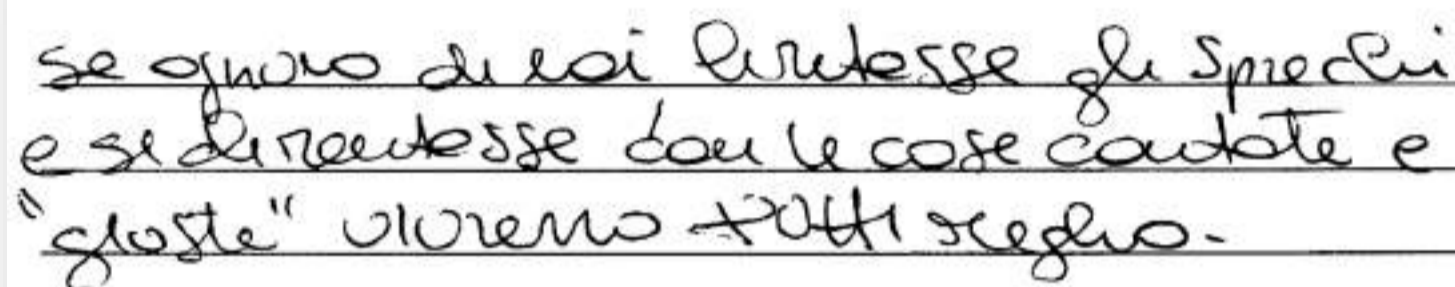 se ognuno di noi limitasse gli sprechi
e si alimentasse con le cose contate e
"giuste" vivremo tutti meglio.